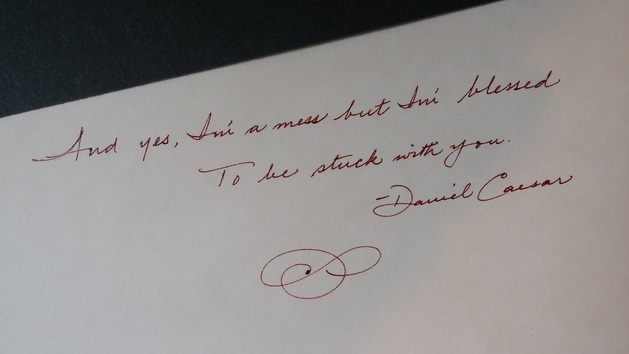 And yes, I'm a mess but I'm blessed
To be stuck with you.
-Daniel Caesar